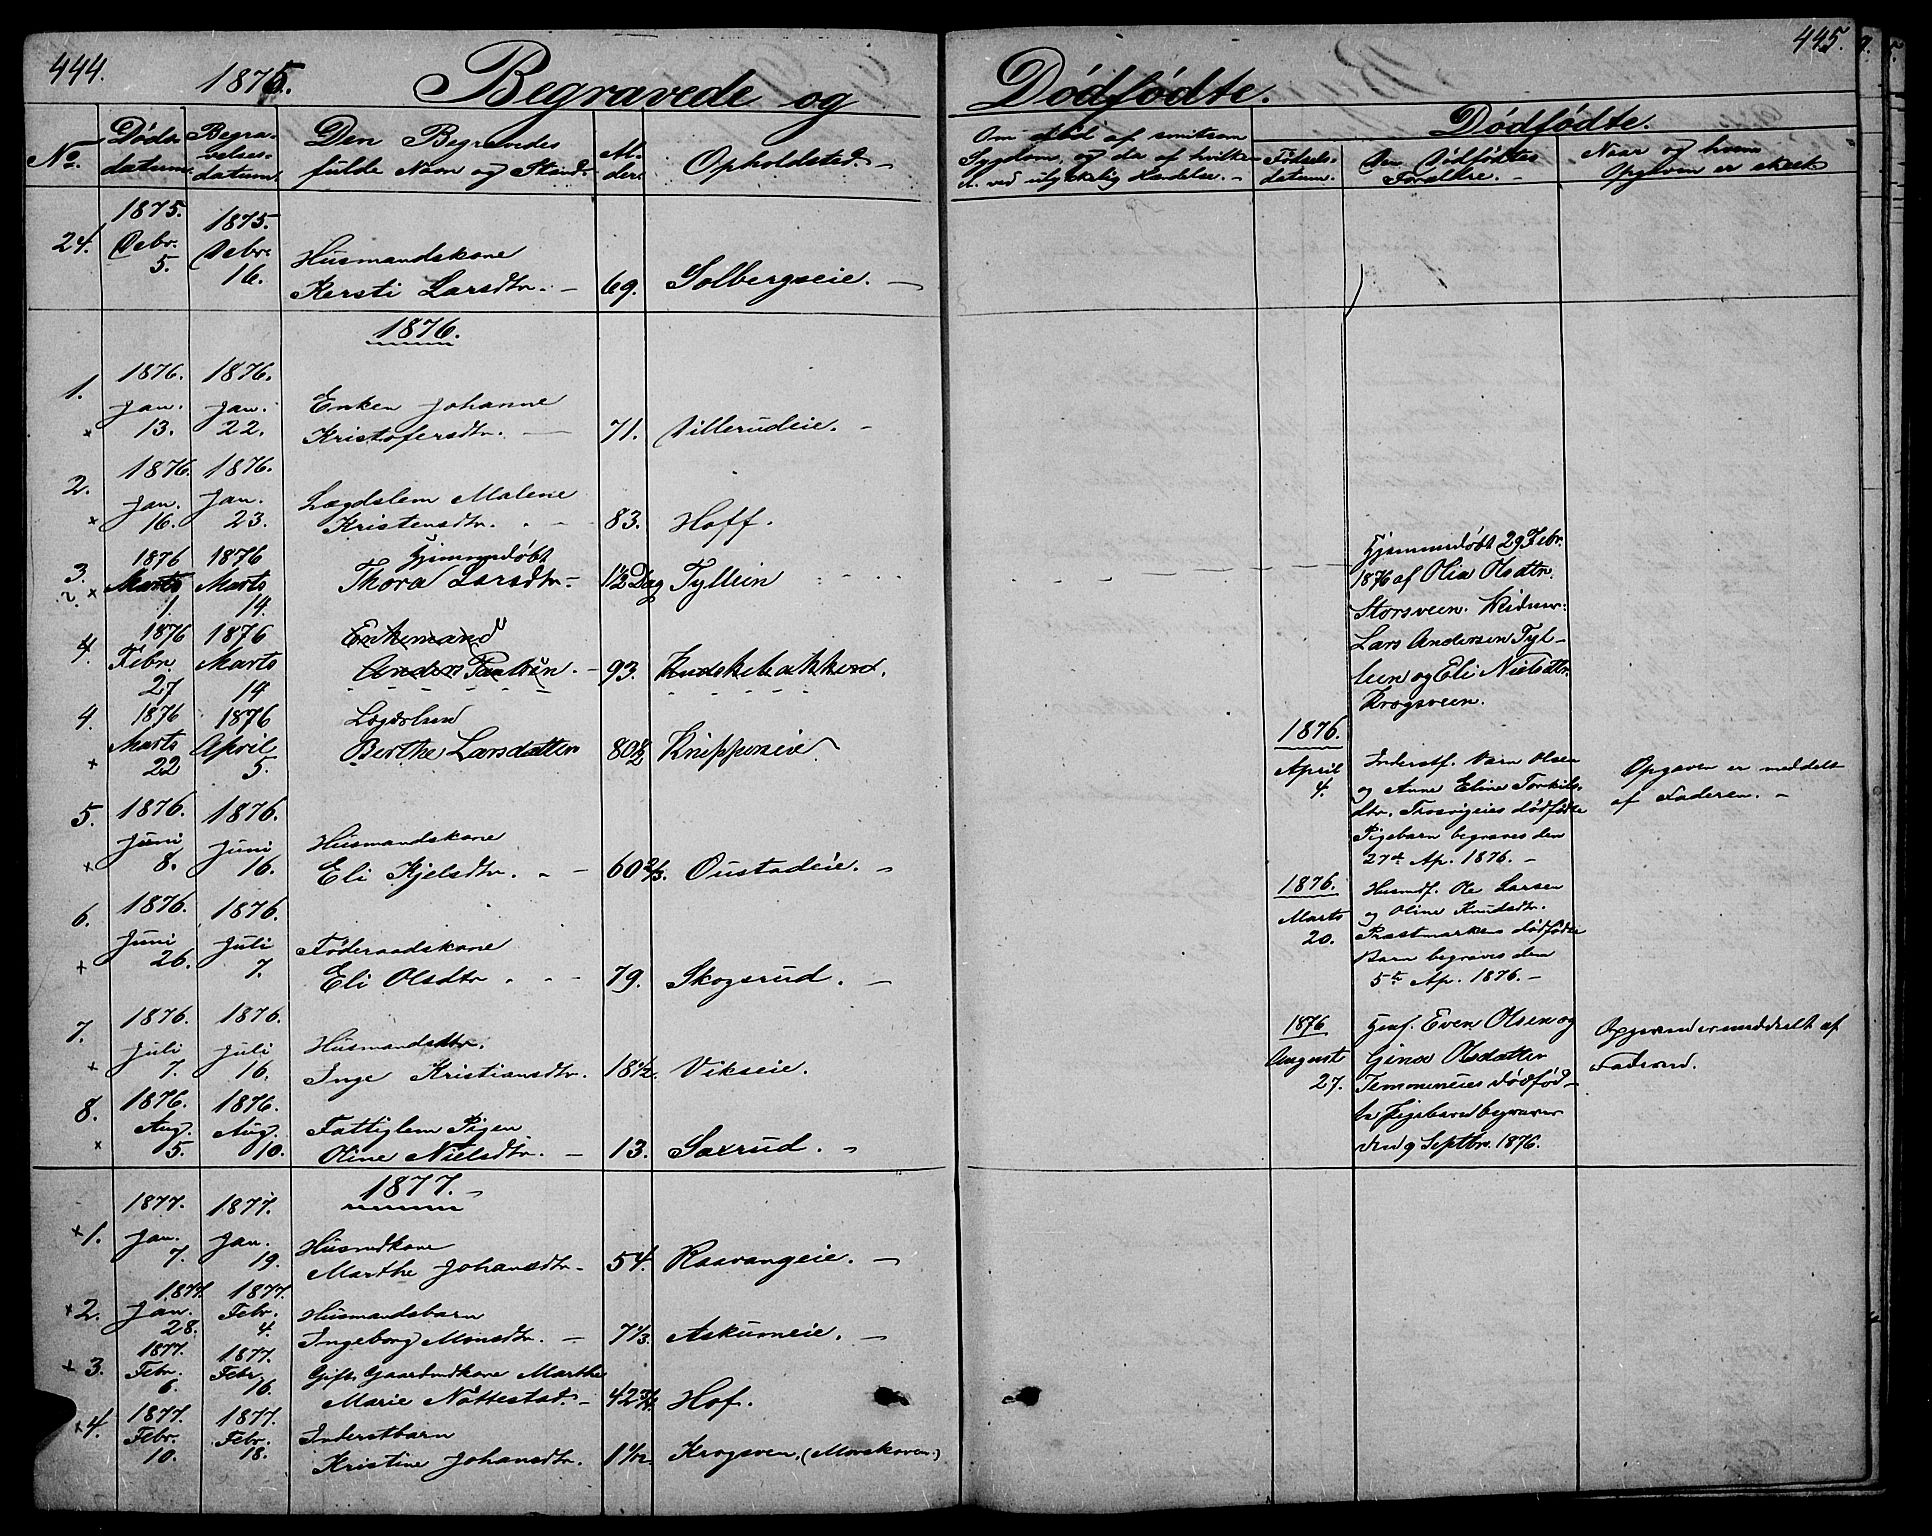 444.
1875.
Begravede og
No.
Døds-
datum.
Begra-
velses-
datum.
Den Begravedes
fulde Navn og Stand.
Al-
der.
Opholdsted. -
24.
1875.
Debr.
5.
1875.
Debr.
16.
Husmandskone
Kersti Larsdtr. -
69.
Solbergseie. -
1876.
1.
1876.
Jan.
13.
1876.
Jan.
22.
Enken Johanne
Kristofersdtr. -
71.
Villerudeie. -
2.
1876.
Jan.
16.
1876.
Jan.
23.
Lægdslem Malene
Kristensdtr. -
83.
Hoff.
3.
1876
Marts
1.
1876
Marts
14.
Hjemmedøbt
Thora Larsdtr -
1½ Dag
Tyllein
4.
1876
Febr.
27
1876
Marts
14
Enkemand
Anders Paulsen. -
93.
4.
1876
Marts
22
1876
April
5.
Lægdslem
Berthe Larsdatter
80½
Knippenseie
5.
1876.
Juni
8.
1876.
Juni
16.
Husmandskone
Eli Kjelsdtr. -
60 2/3.
Oustadeie. -
6.
1876.
Juni
26.
1876.
Juli
7.
Føderaadskone
Eli Olsdtr -
79.
Skogsrud. -
7.
1876.
Juli
7.
1876.
Juli
16.
Husmandsdtr.
Inge Kristiansdtr.
18½.
Vikseie.
8.
1876.
Aug.
5.
1876.
Aug.
10.
Fattiglem Pigen
Oline Nielsdtr. -
13.
Saxrud. -
1877. -
+1.
1877.
Jan.
7.
1877.
Jan.
19.
Husmdkone
Marthe Johansdtr -
54.
Raavangeie. -
+2.
1877.
Jan.
28.
1877.
Febr.
4.
Husmandsbarn
Ingeborg Monsdtr. -
7 1/3.
Askumeie. -
+3.
1877.
Febr.
6.
1877.
Febr.
16.
Gift Gaardmdkone Marthe
Marie Nøttestad. -
42 3/4.
Hof.
+4.
1877.
Febr.
10.
1877.
Febr.
18.
Inderstbarn
Kristine Johansdtr.
1 1/12.
Krogsveen, (Morskoven.)
445.
Dødfødte.
Om død af smitsom
Sygdom, og da af hvilken
el. ved ulykkelig Hændelse. -
Dødfødte.
Fødsels-
datum.
Den Dødfødtes
Forældre. -
Naar og hvem
Opgaven er skeet
Hjemmedøbt 29 Febr.
1876 af Olia Olsdtr.
Storsveen.
Lars Andersen Tyl-
leen og Eli Nielsdtr.
Krogsveen.
1876.
April
4.
Inderstf. Olsen
og Anne Eline Torkils-
dtr. dødfødte
Pigebarn begraves den
27de Ap. 1876. -
Opgaven er meddelt
af Faderen. -
1876.
Marts
20.
Husmdf. Ole Larsen
og Oline Knudsdtr.
Præstmarkens dødfødte
Barn begraves den
5te Ap. 1876. -
1876
August
27.
Even Olsen og
Gina Olsdatter
dødfød-
te Pigebarn begraves
den 9 Septbr. 1876.
Opgaven er meddelt af
Faderen.